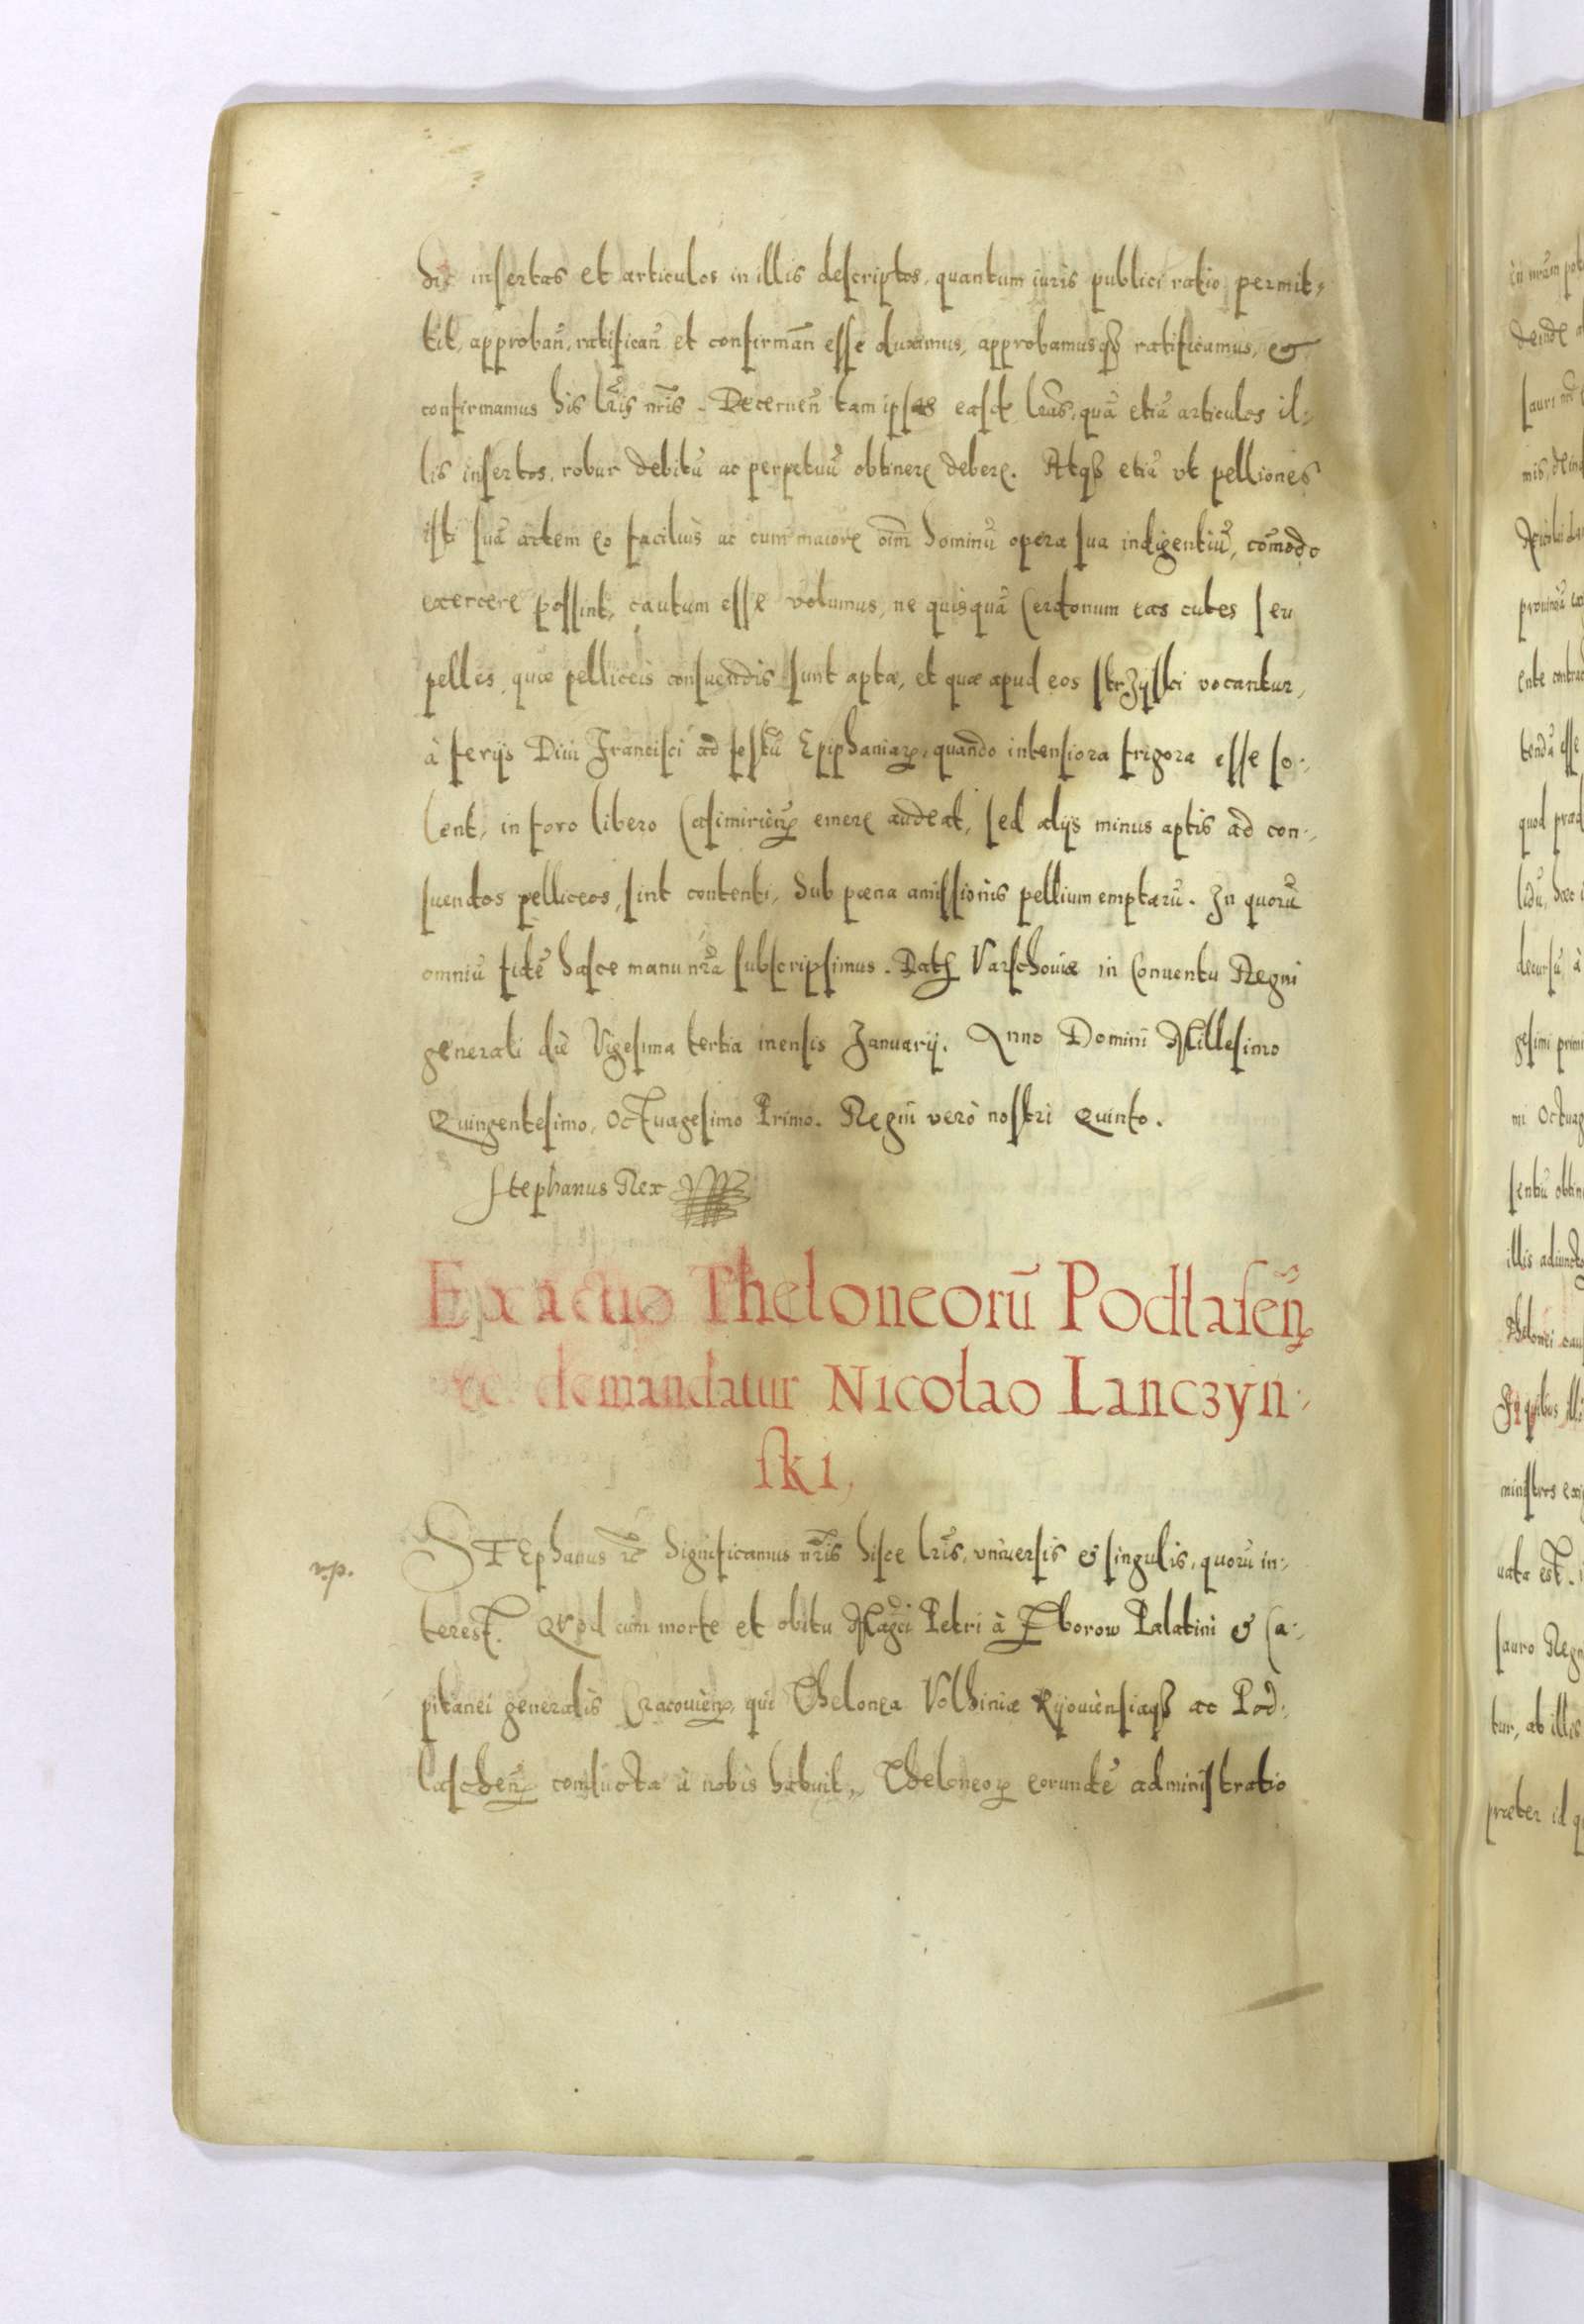 hic insertas et articulos in illis descriptos, quantum iuris publici ratio permit-
tit, approbañ, ratificañ et confirmãn esse duximus, approbamusq3 ratificamus, &
confirmamus his lr̃is nr̃is. Decerneñ tam ipsas easdẽ lr̃as, quã etiã articulos il-
lis insertos, robur debitũ ac perpetuũ obtinere debere. Atq3 etiã vt pelliones
isti suã artem eo facilius ac cum maiore oĩm hominũ opera sua indigentiũ, cõmodo
exercere possint, cautum esse volumus, ne quisquã Cerdonum eas cutes seu
pelles, quæ pelliceis consuendis sunt aptæ, et quæ apud eos strzyski vocantur,
à ferijs Diui Francisci ad festũ Epiphaniaꝝ, quando intensiora frigora esse so-
lent, in foro libero Casimirieñ emere audeat, sed alijs minus aptis ad con-
suendos pelliceos, sint contenti, sub pæna amissionis pellium emptarũ. In quorũ
omniũ fidẽ hasce manu nr̃a subscripsimus. Dat Varschouiæ in Conuentu Regni
generali die Vigesima tertia mensis Januarij. Anno Domini Millesimo
Quingentesimo, Octuagesimo Primo. Regni verò nostri Quinto.
Stephanus Rex
Exactio Theloneorũ Podlaseñ
etc. demandatur Nicolao Lanczyn-
ski,
v.p.
STEphanus etc Significamus nr̃is hisce lr̃is, vniuersis & singulis, quorũ in-
terest. Quod cum morte et obitu Magci Petri à Sborow Palatini & Ca-
pitanei generalis Cracouieñ, qui Thelonea Volhiniæ Kijouiensiaq3 ac Pod-
lascheñ conducta à nobis habuit, Theloneoꝝ eorundẽ administratio